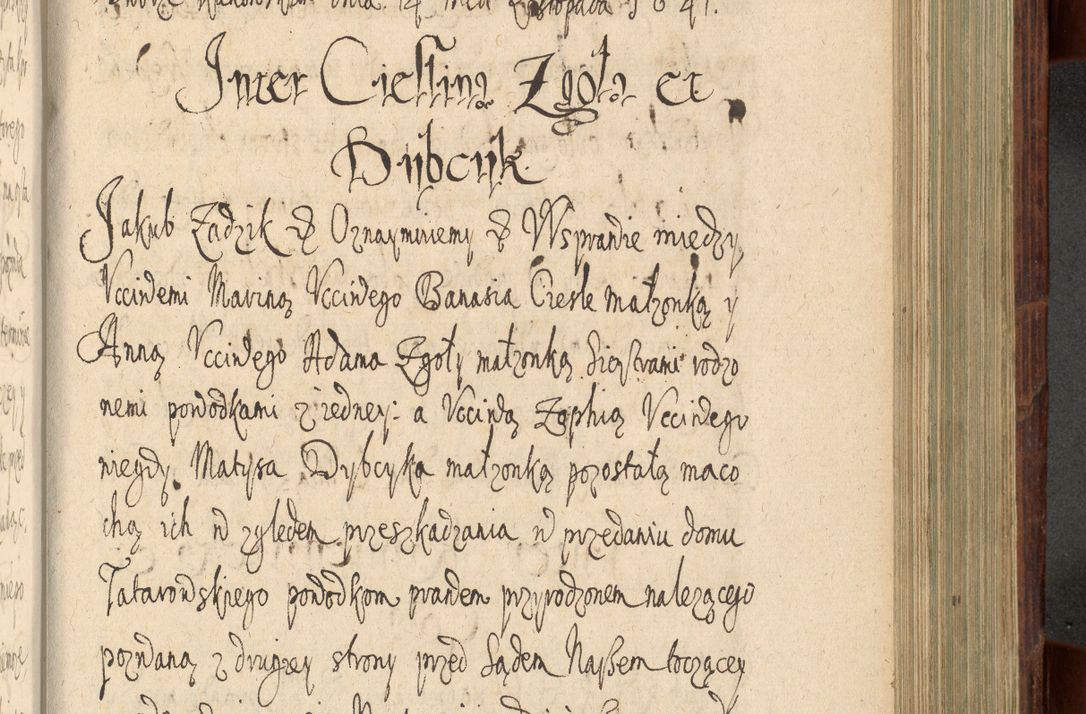 Inter Ciesliną Zgołą et
Dybcyk
Jakub Zadzik & Oznaymuiemy & W sprawie między
Vcciwemi Mariną Vcciwego Banasia Ciesle małzonką y
Anną Vcciwego Adama Zgoły małzonką siostrami rodzo
nemi powodkami z iedney: a Vcciwą Zophią Vcciwego
niegdy Matysa Dybcyka małzonką pozostałą maco
chą ich w zgledem przeszkadzania w przedaniu domu
Tatarowskiego powodkom prawem przyrodzonem nalezącego
pozwaną z drugiey strony przed Sądem Naszem toczącey